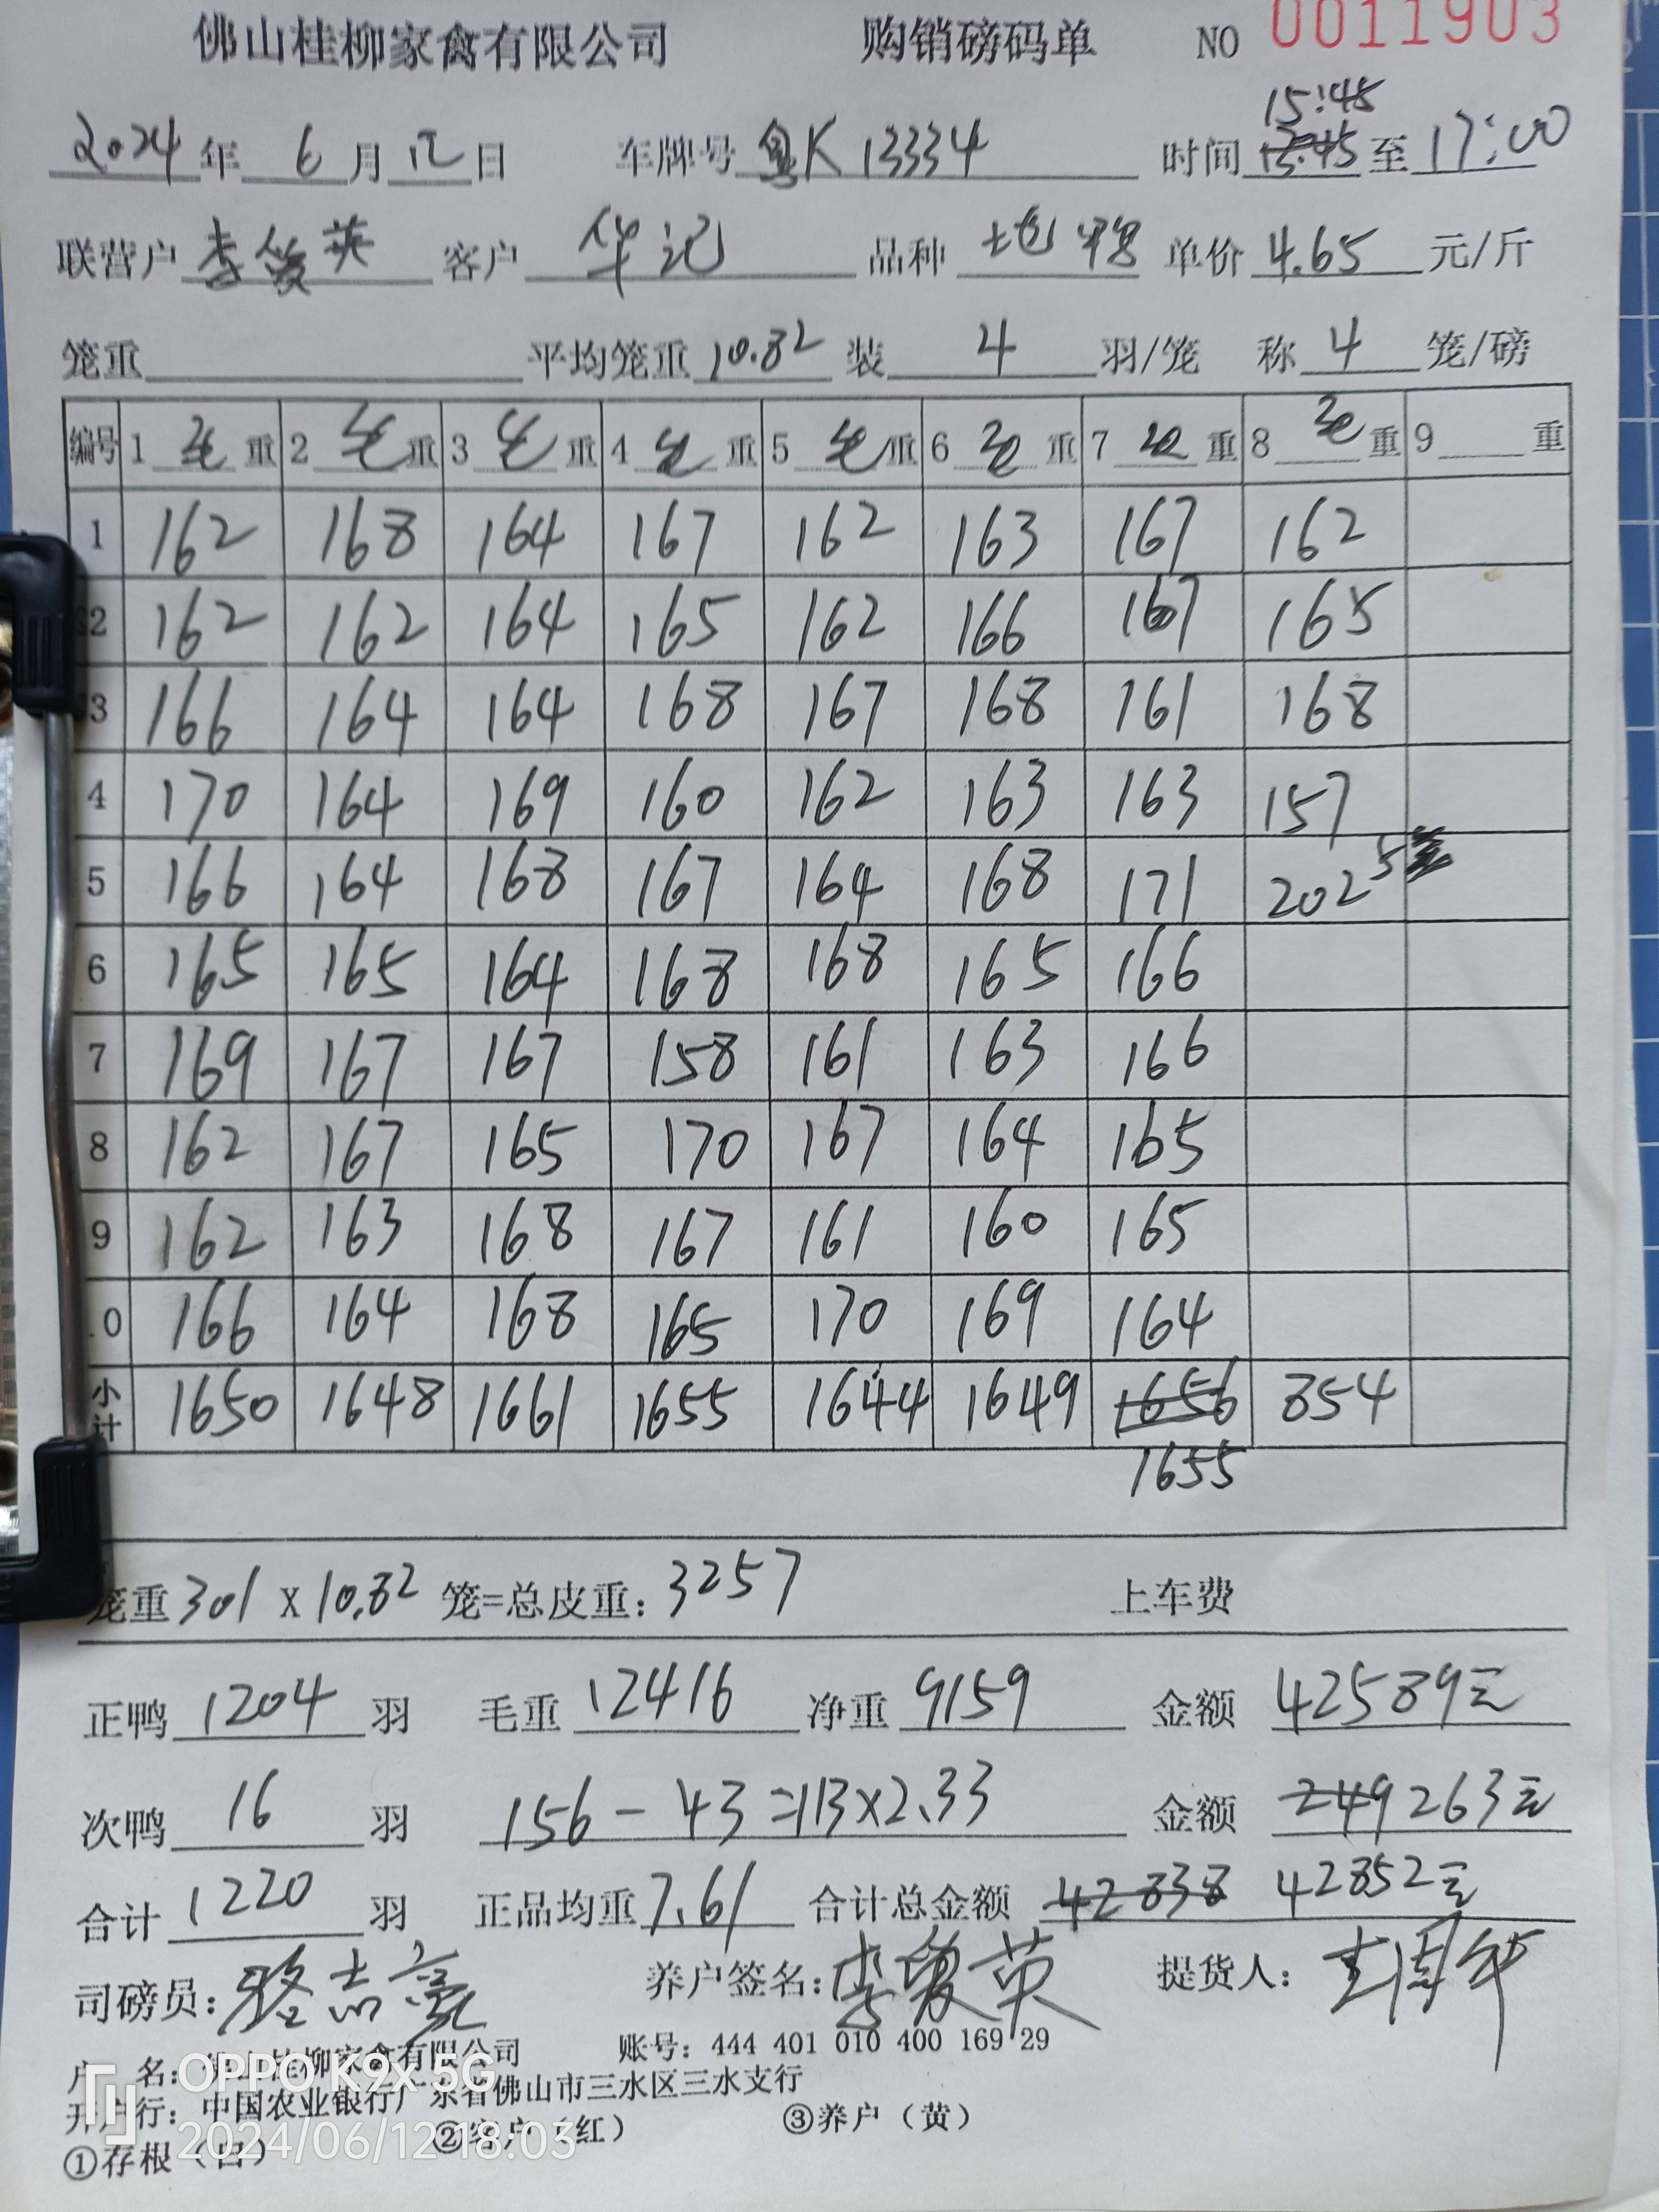 佛山桂柳家禽有限公司 购销磅码单 NO 0011903
15:45
2024年 6月 12日 车牌号 粤K 13334 时间 至 17:00
联营户 李俊英 客户 华记 品种 土鸭 单价 4.65 元/斤
笼重 平均笼重 10.82 装 4 羽/笼 称 4 笼/磅
编号 1 毛 重 2 毛 重 3 毛 重 4 毛 重 5 毛 重 6 毛 重 7 毛 重 8 毛 重 9 重
1 162 168 164 167 162 163 167 162
2 162 162 164 165 162 166 167 165
3 166 164 164 168 167 168 161 168
4 170 164 169 160 162 163 163 157
5 166 164 168 167 164 168 171 202 5
6 165 165 164 168 168 165 166
7 169 167 167 158 161 163 166
8 162 167 165 170 167 164 165
9 162 163 168 167 161 160 165
10 166 164 168 165 170 169 164
小计 1650 1648 1661 1655 1644 1649 1656 854
1655
笼重 301 X 10.82 笼=总皮重: 3257 上车费
正鸭 1204 羽 毛重 12416 净重 9159 金额 42589元
次鸭 16 羽 156-43=113×2.33 金额 249 263元
合计 1220 羽 正品均重 7.61 合计总金额 42838 42852元
司磅员: 养户签名: 李俊英 提货人:
户 名: 佛山桂柳家禽有限公司 账号: 444 401 010 400 169 29
开户行: 中国农业银行广东省佛山市三水区三水支行
①存根（白） ②客户（红） ③养户（黄）
OPPO K9x 5G
2024/06/12 18:03